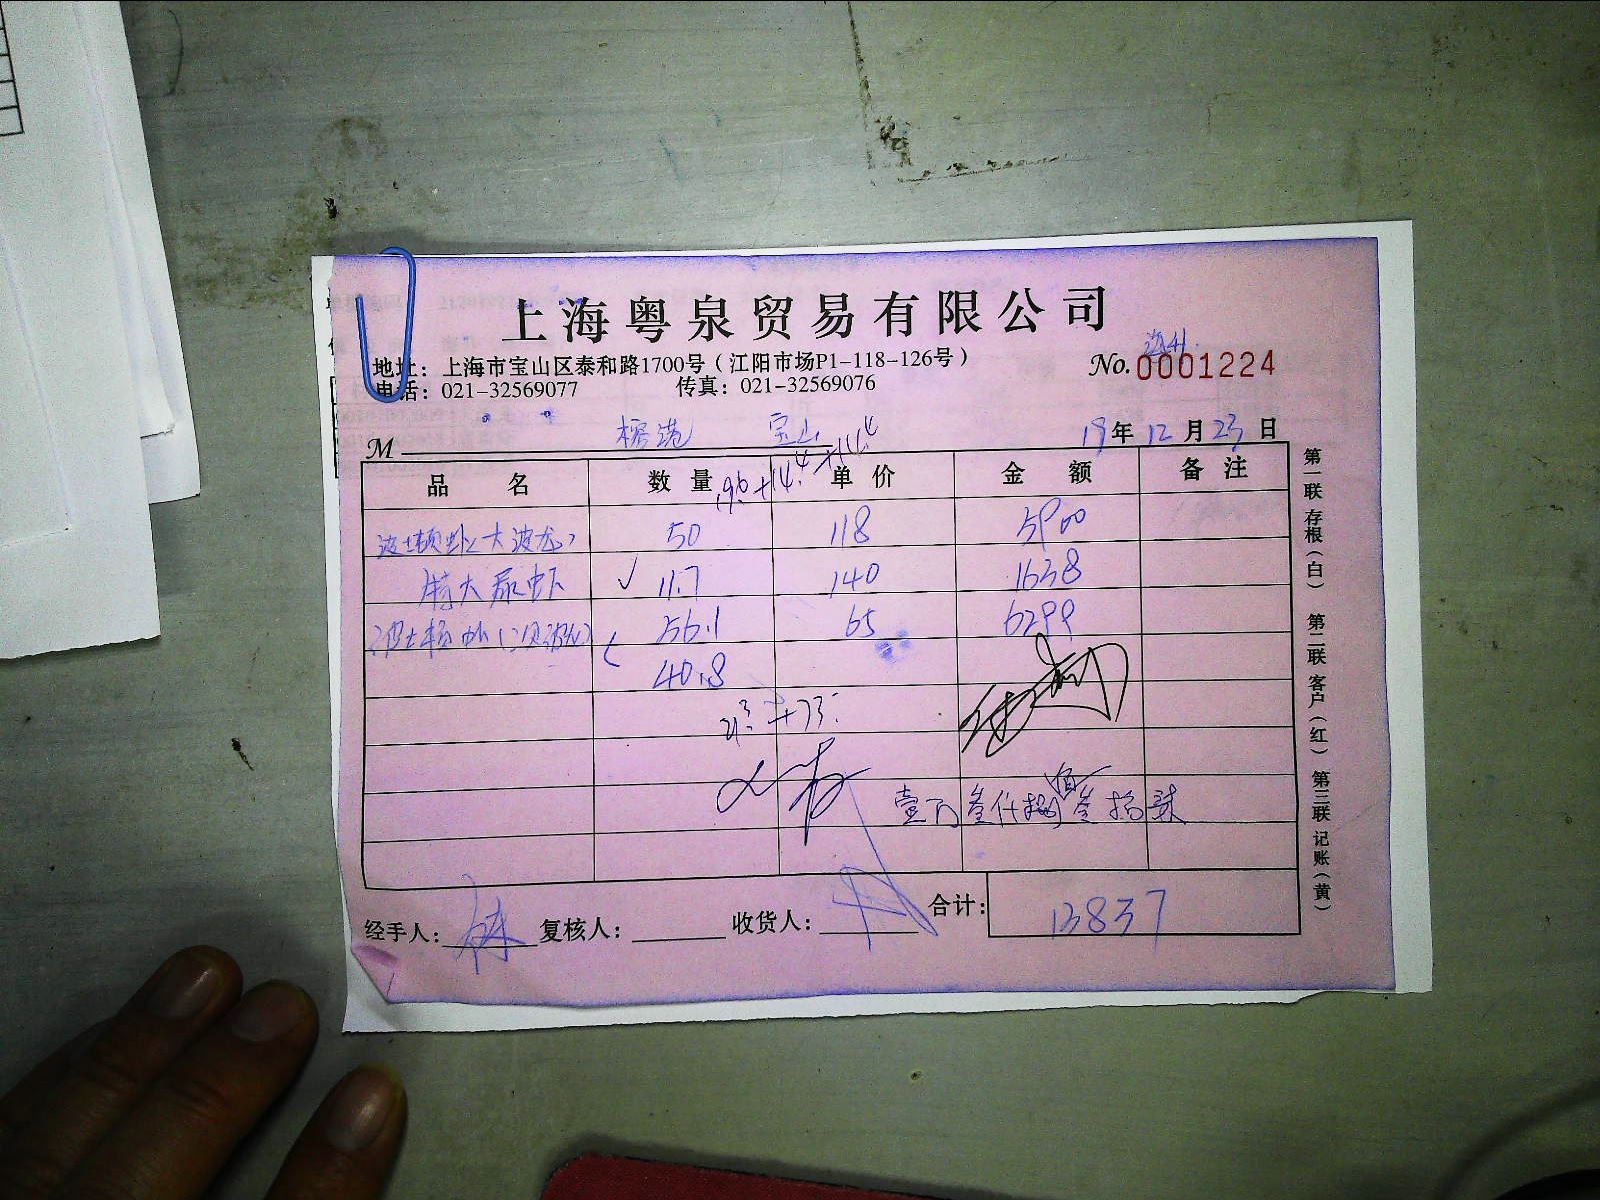 上海粤泉贸易有限公司
地址：上海市宝山区泰和路1700号（江阳市场P1-118-126号）
电话：021-32569077 传真：021-32569076
No. 0001224
M 宝山 19年12月23日
品 名 数 量 单 价 金 额 备 注
波士顿虾(大波龙) 50 118 5900
特大尿虾 11.7 140 1638
56.1 65 6299
40.8
壹万叁仟捌佰叁拾柒
经手人： 复核人： 收货人： 合计： 13837
第一联 存根（白） 第二联 客户（红） 第三联 记账（黄）